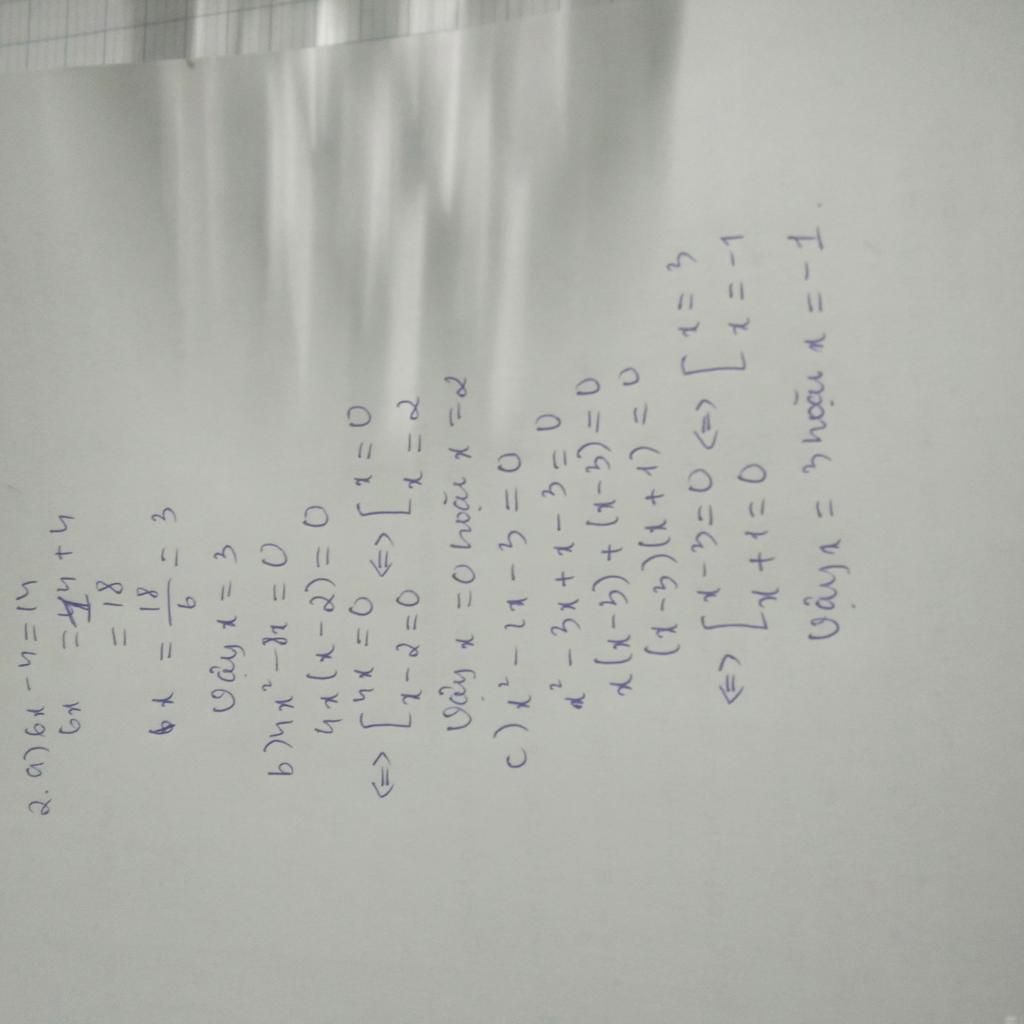 2. a) 6x - 4 = 14
6x = 14 + 4
= 18
x = 18/6 = 3
Vậy x = 3
b) 4x² - 8x = 0
4x(x - 2) = 0
<=> [ 4x = 0 <=> [ x = 0
x - 2 = 0 x = 2
Vậy x = 0 hoặc x = 2
c) x² - 2x - 3 = 0
x² - 3x + x - 3 = 0
x(x - 3) + (x - 3) = 0
(x - 3)(x + 1) = 0
<=> [ x - 3 = 0 <=> [ x = 3
x + 1 = 0 x = -1
Vậy x = 3 hoặc x = -1.